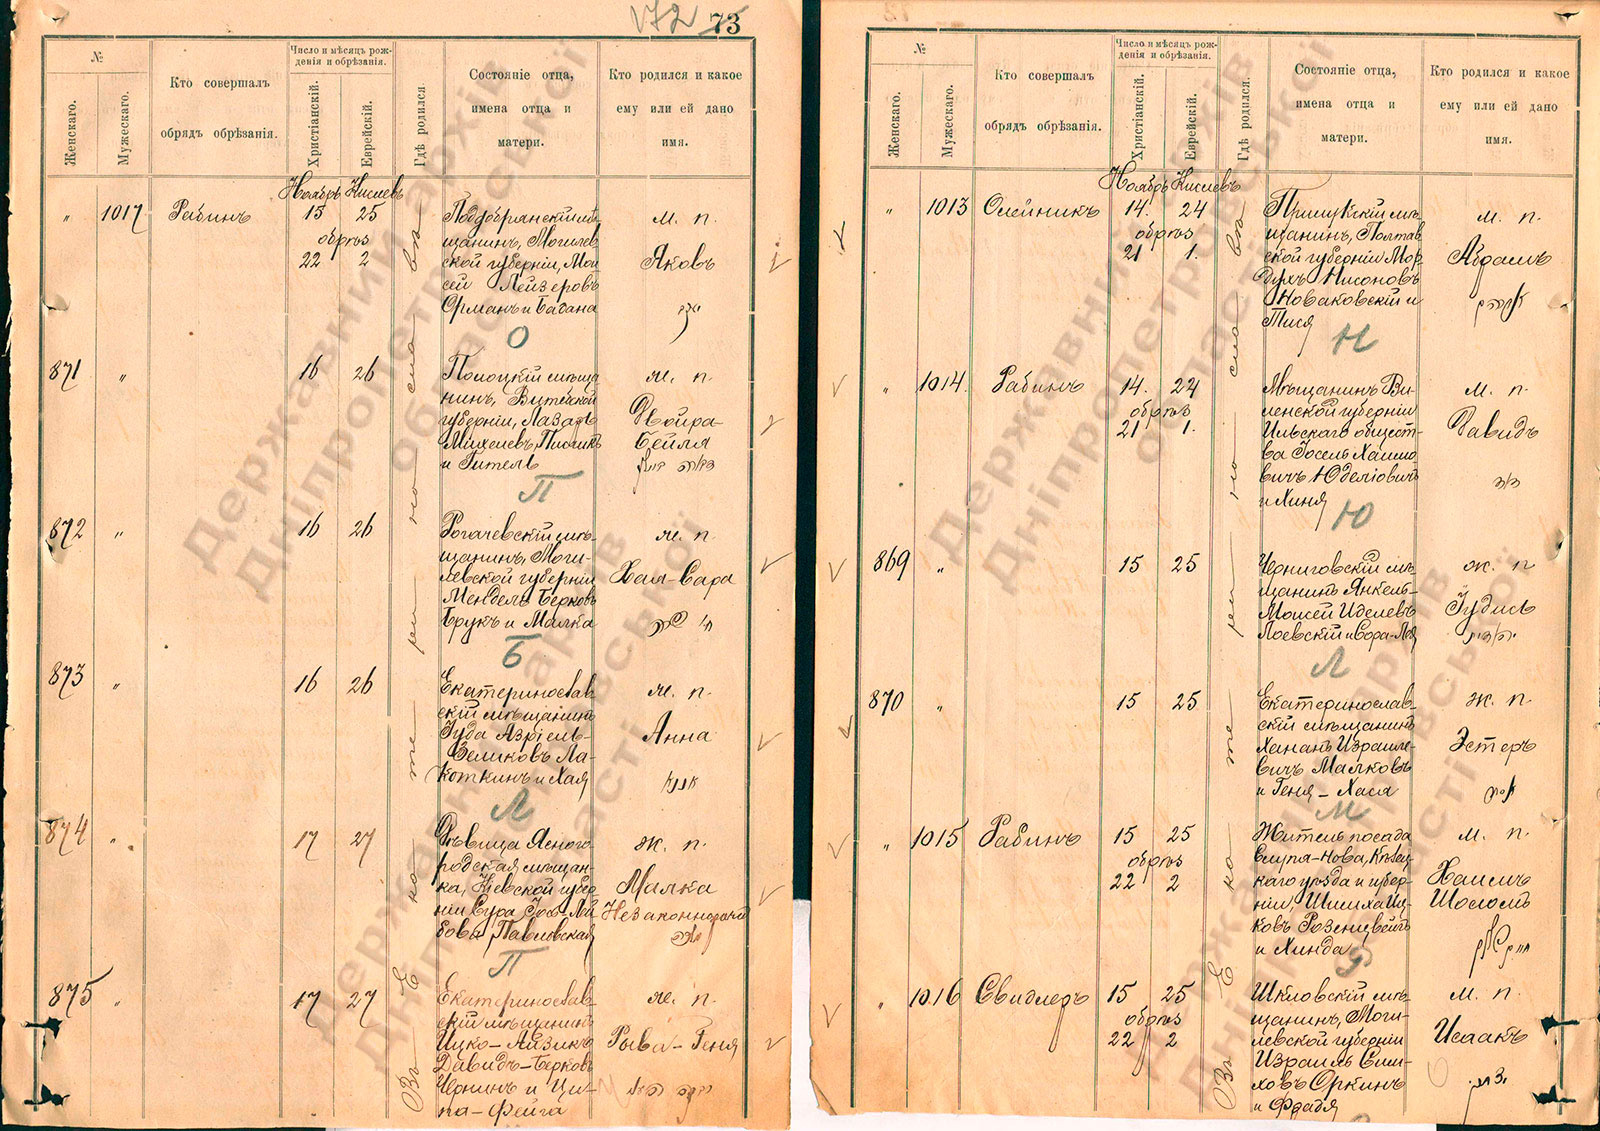 172 73
№
Женскаго.
Мужескаго.
Кто совершалъ
обрядъ обрѣзанія.
Число и мѣсяцъ рож-
денія и обрѣзанія.
Христіанскій.
Еврейскій.
Гдѣ родился
Состояніе отца,
имена отца и
матери.
Кто родился и какое
ему или ей дано
имя.
Ноябрь Кислевъ
Въ Екатеринославѣ
„ 1017 Рабинъ 15 25
обрѣз
22 2
щанинъ, Могилев
ской губерніи, Мои
сей Лейзеровъ
Орманъ и
м. п.
Яковъ
О
871 „ 16 26
Полоцкій мѣща
нинъ, Витебской
губерніи, Лазарь
и Гитель
ж. п.
Двойра-
Бейля
П
872 „ 16 26
Рогачевскій мѣ-
щанинъ, Моги-
левской губерніи
Мендель Берковъ
Брукъ и Малка
ж. п.
Хая-Сара
Б
873 „ 16 26
Екатеринослав
скій мѣщанинъ
Іуда Азріель-
Зеликовъ Ла-
коткинъ и Хая
ж. п.
Анна
Л
874 „ 17 27
Дѣвица Ясного-
родская мѣщан-
ка, Кіевской губер-
ніи Сура
Павловская
ж. п.
Малка
П
875 „ 17 27
Екатеринослав-
скій мѣщанинъ
Ицко-Айзикъ
Давидъ-Берковъ
Чернинъ и Ци-
па-Фейга
ж. п.
Рыва-Геня
№
Женскаго.
Мужескаго.
Кто совершалъ
обрядъ обрѣзанія.
Число и мѣсяцъ рож-
денія и обрѣзанія.
Христіанскій.
Еврейскій.
Гдѣ родился.
Состояніе отца,
имена отца и
матери.
Кто родился и какое
ему или ей дано
имя.
Ноябрь Кислевъ
Въ Екатеринославѣ
„ 1013 Олейникъ 14. 24
обрѣз
21 1.
Прилукскій мѣ-
щанинъ, Полтав
ской губерніи Мор
духъ Нисоновъ
Новаковскій и
Тися
м. п.
Абрамъ
Н
„ 1014. Рабинъ 14. 24
обрѣз
21 1.
Мѣщанинъ Ви-
ленской губерніи
Ильскаго общест-
ва Іосель Хаимо
вичъ Юделіовичъ
и Хиня
м. п.
Давидъ
Ю
869 „ 15 25
Черниговскій мѣ-
щанинъ Янкель-
Моисей Иделевъ
Лоевскій и Сора-Лея
ж. п
Іудись
Л
870 „ 15 25
Екатеринослав-
скій мѣщанинъ
Хананъ Израиле-
вичъ Малковъ
и Геня-Хася
ж. п.
Эстеръ
М
„ 1015 Рабинъ 15 25
обрѣз
22 2
Житель посада
Слупя-Нова, Кѣлец-
каго уѣзда и губер-
ніи,
ковъ Розенцвейгъ
и Хинда
м. п.
Хаимъ
Шоломъ
Р
„ 1016 Свидлеръ 15 25
обрѣз
22 2
Шкловскій мѣ-
щанинъ, Моги-
левской губерніи
Израиль Сим-
ховъ Оркинъ
и Фрадя
м. п.
Исаакъ
Державний архів
Дніпропетровської
області